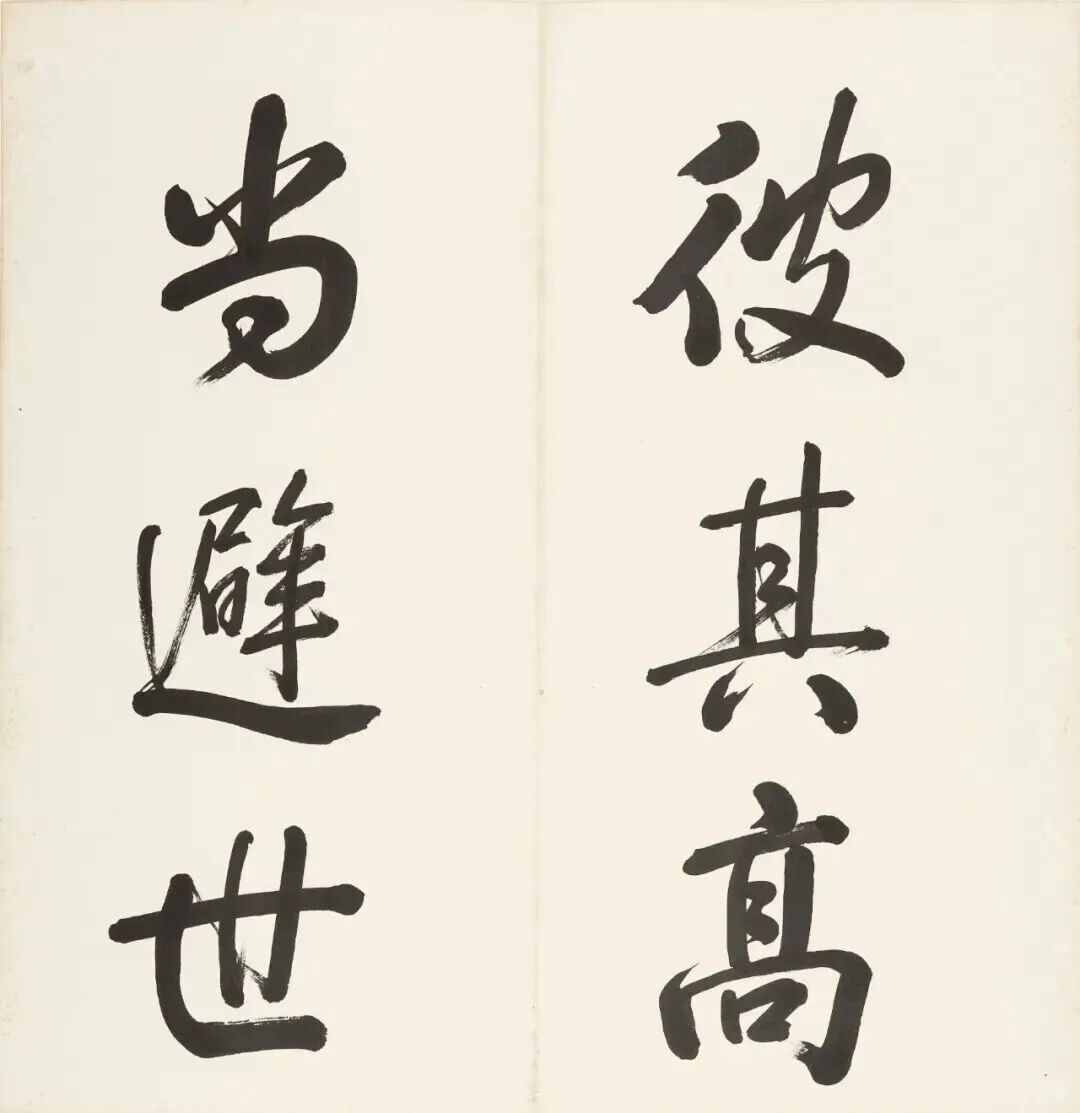 彼其高
尚避世